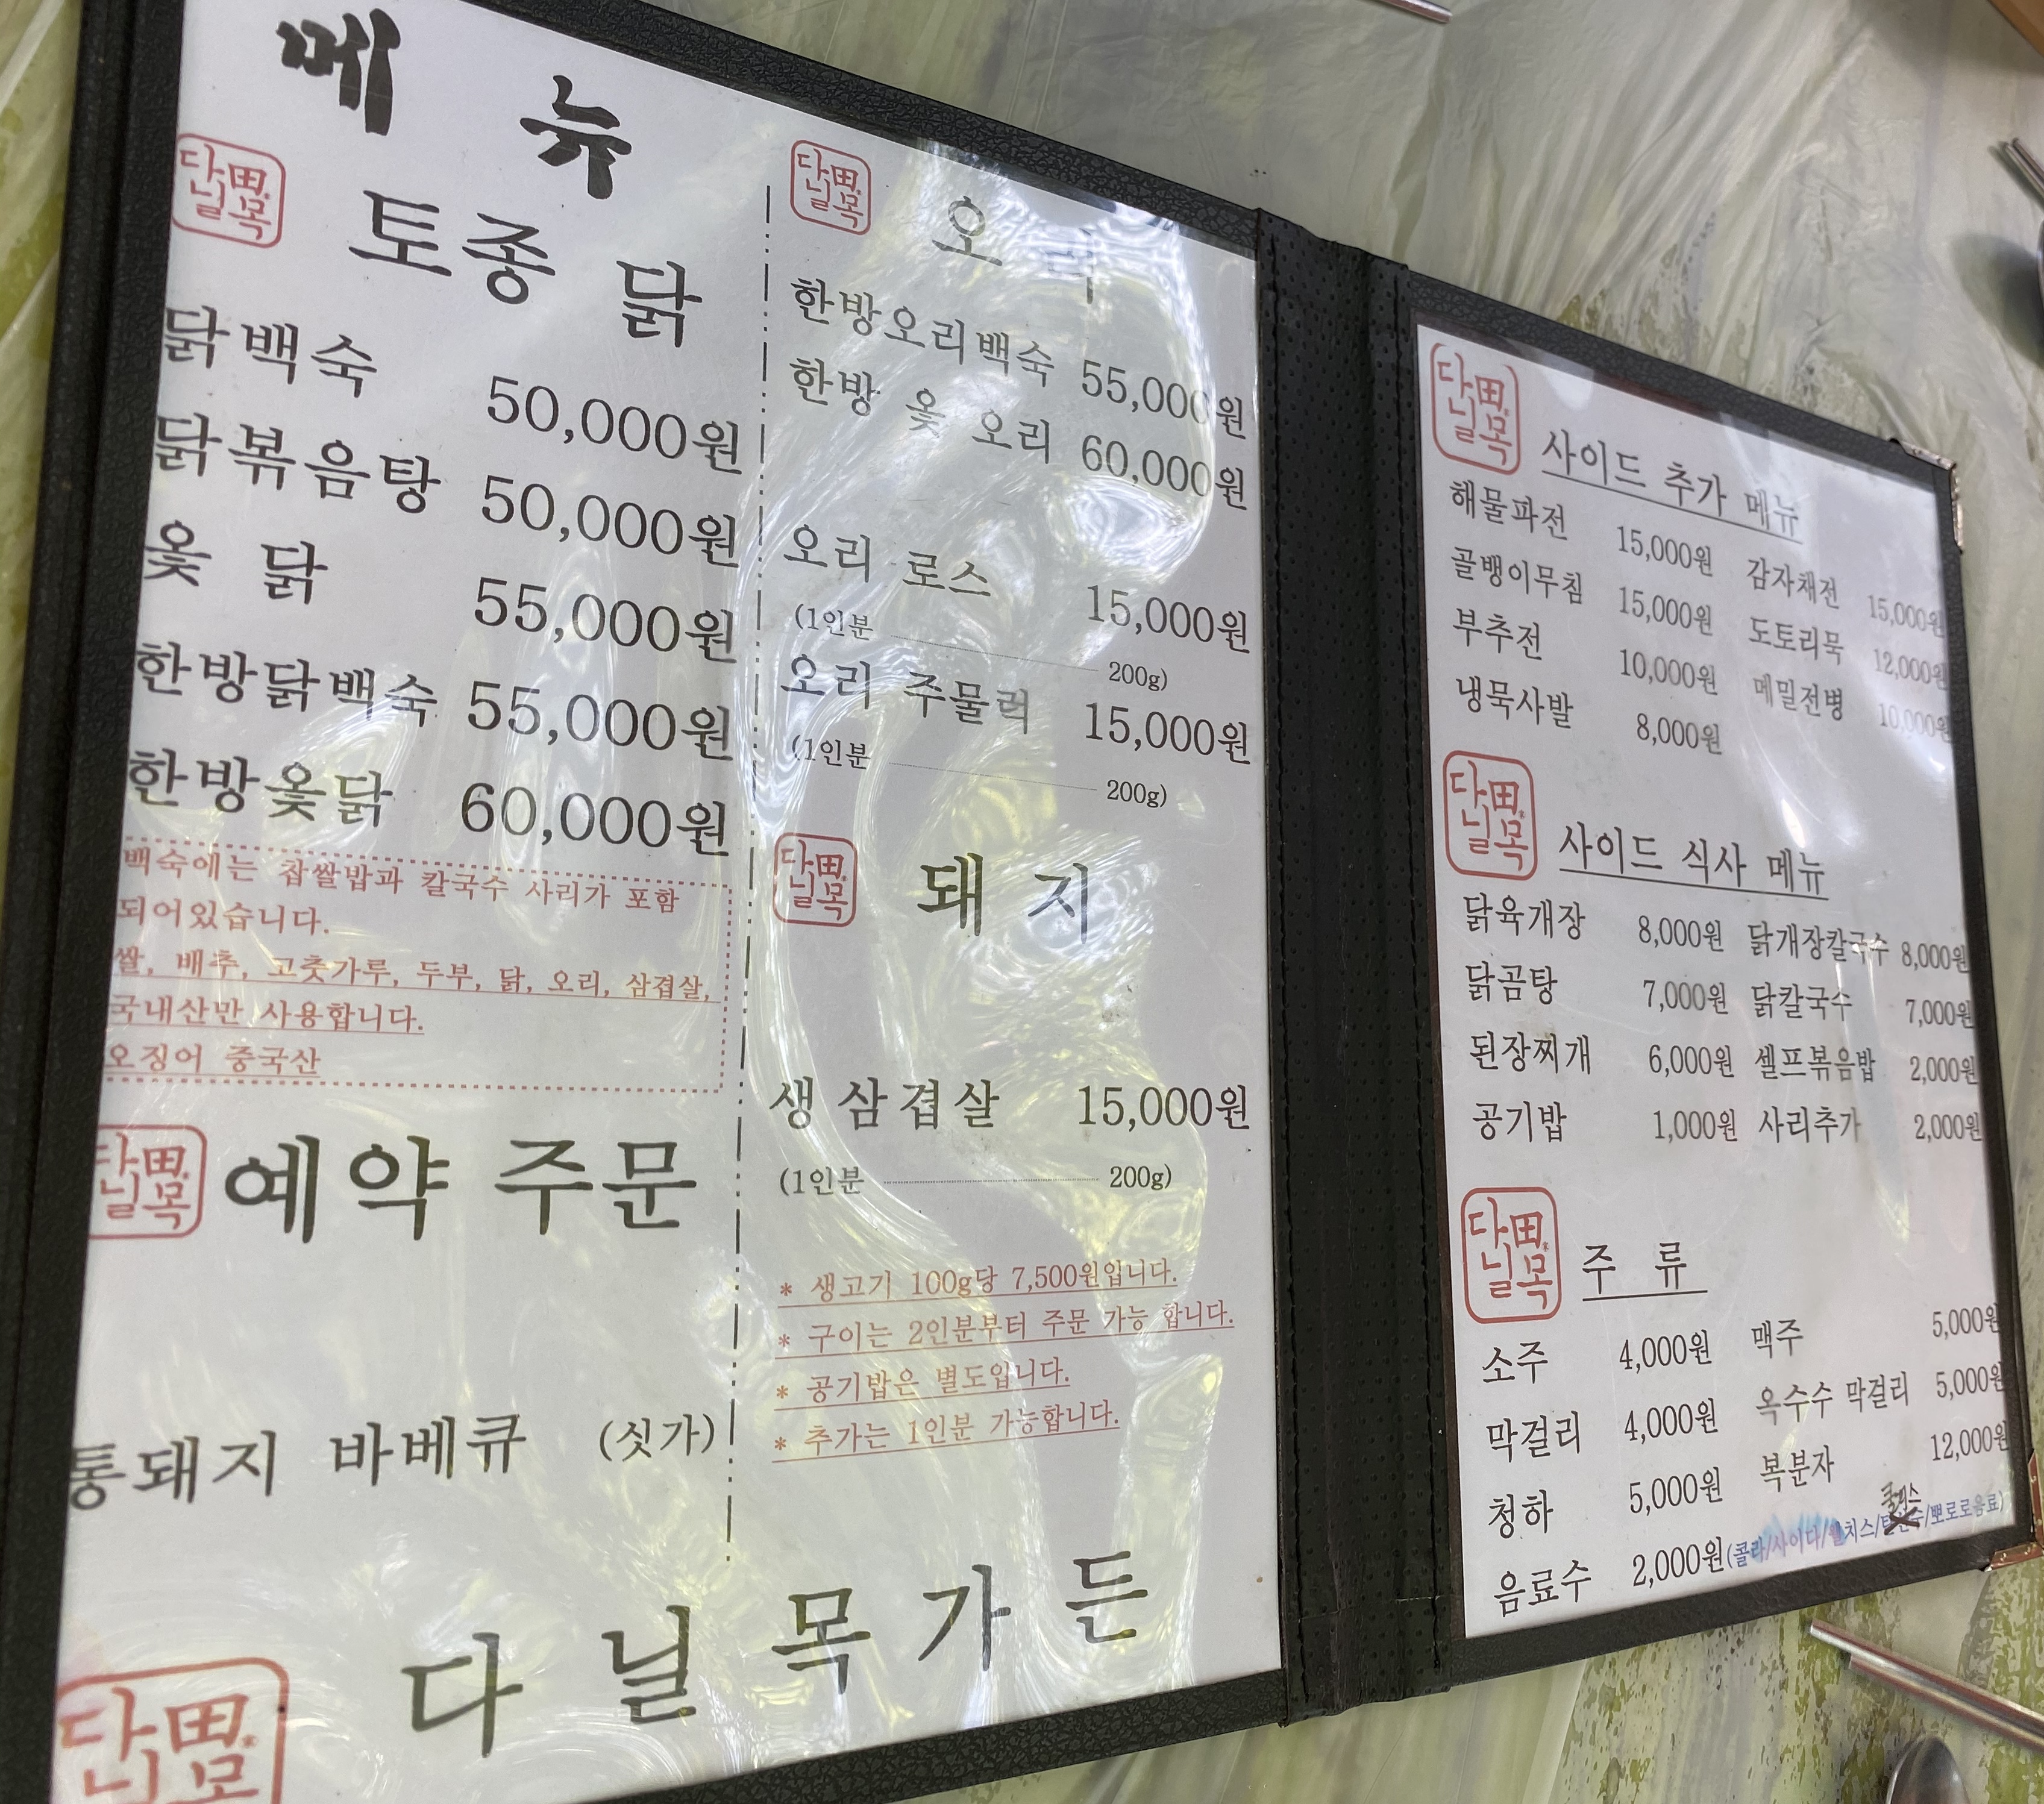 메뉴
다닐목
토종 닭
닭백숙 50,000원
닭볶음탕 50,000원
옻 닭 55,000원
한방닭백숙 55,000원
한방옻닭 60,000원
백숙에는 찹쌀밥과 칼국수 사리가 포함
되어있습니다.
쌀, 배추, 고춧가루, 두부, 닭, 오리, 삼겹살,
국내산만 사용합니다.
오징어 중국산
다닐목
예약 주문
통돼지 바베큐 (싯가)
다닐목
오리
한방오리백숙 55,000원
한방 옻 오리 60,000원
오리 로스 15,000원
(1인분 200g)
오리 주물럭 15,000원
(1인분 200g)
다닐목
돼지
생삼겹살 15,000원
(1인분 200g)
* 생고기 100g당 7,500원입니다.
* 구이는 2인분부터 주문 가능 합니다.
* 공기밥은 별도입니다.
* 추가는 1인분 가능합니다.
다닐목
다닐목가든
다닐목
사이드 추가 메뉴
해물파전 15,000원 감자채전 15,000원
골뱅이무침 15,000원 도토리묵 12,000원
부추전 10,000원 메밀전병 10,000원
냉묵사발 8,000원
다닐목
사이드 식사 메뉴
닭육개장 8,000원 닭개장칼국수 8,000원
닭곰탕 7,000원 닭칼국수 7,000원
된장찌개 6,000원 셀프볶음밥 2,000원
공기밥 1,000원 사리추가 2,000원
다닐목
주 류
소주 4,000원 맥주 5,000원
막걸리 4,000원 옥수수 막걸리 5,000원
청하 5,000원 복분자 12,000원
음료수 2,000원(콜라/사이다/웰치스/탄산수/뽀로로음료)